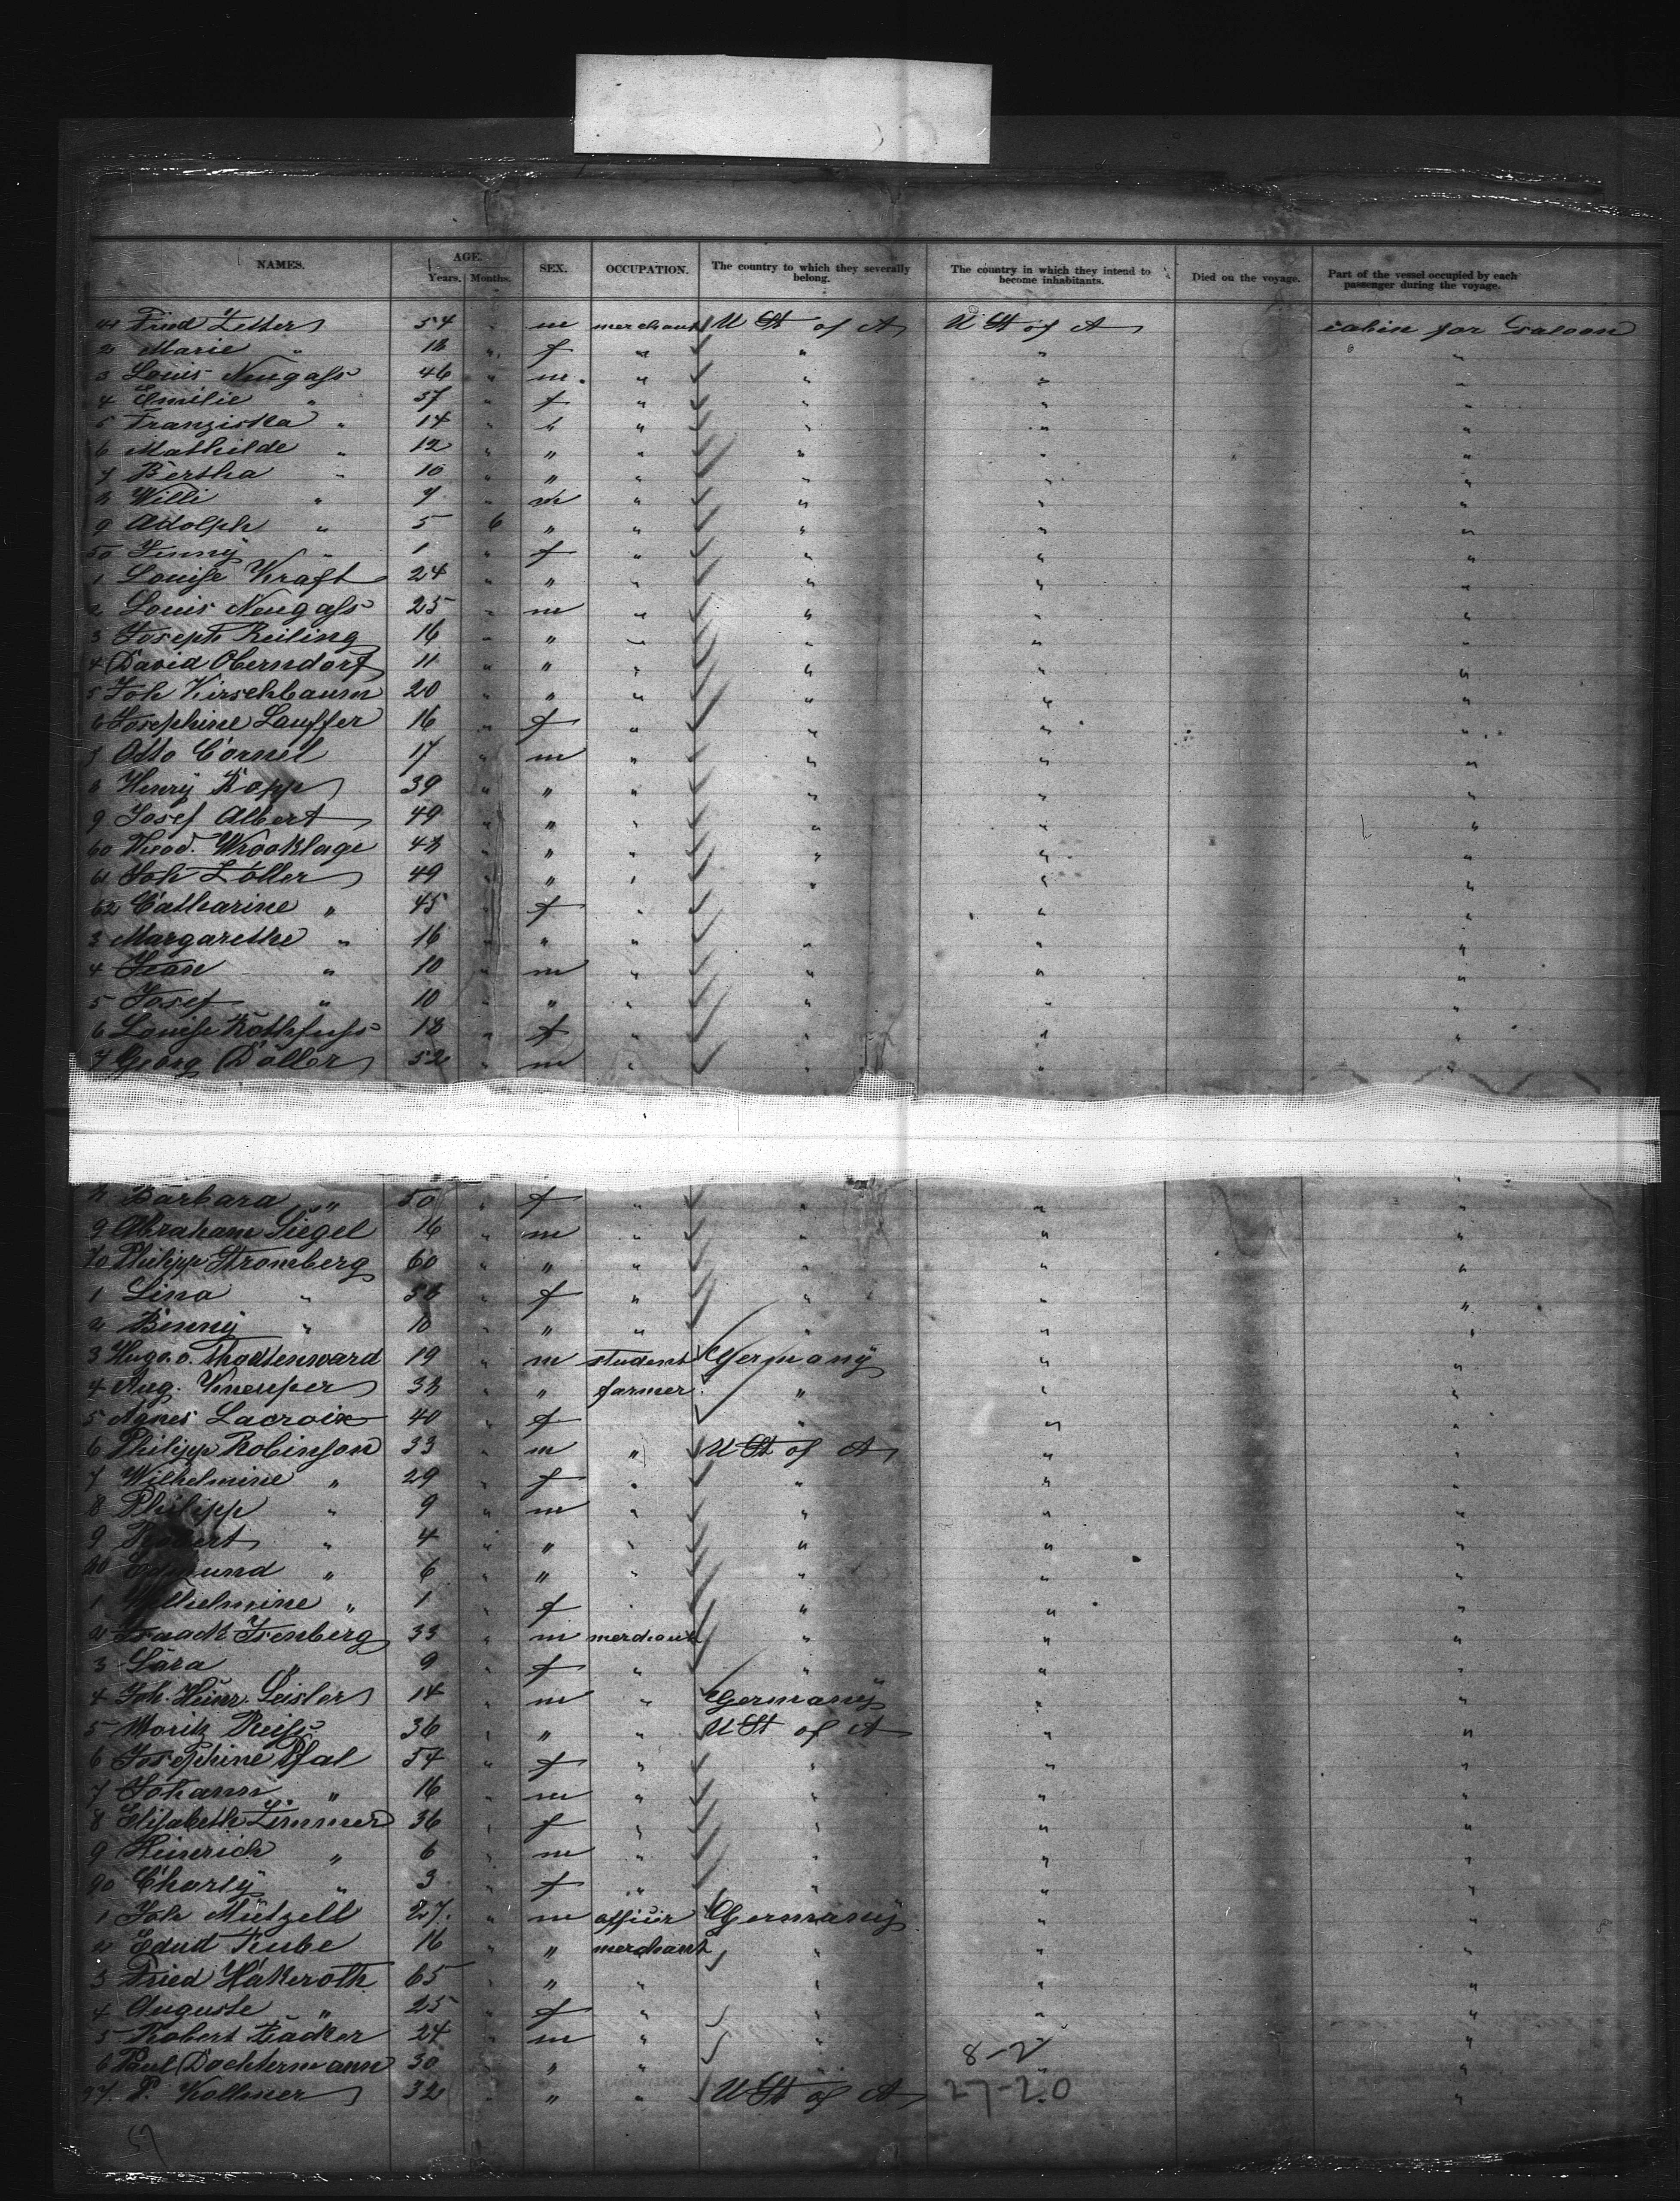 NAMES. AGE. Years. Months. SEX. OCCUPATION. The country to which they severally belong. The country in which they intend to become inhabitants. Died on the voyage. Part of the vessel occupied by each passenger during the voyage.
54 " m merchant U St of A U St of A cabin for saloon
2 Marie " 18 " f " " " "
3 Louis Neugass 46 " m " " " "
4 Emilie " 37 " f " " " "
5 Franziska " 14 " " " " "
6 Mathilde " 12 " " " " " "
7 Bertha " 10 " " " " " "
8 Willi " 7 " m " " " "
9 Adolph " 5 6 " " " " "
50 " 1 " f " " " "
1 Louise Kraft 24 " " " " " "
2 Louis Neugass 25 " m " " " "
3 Joseph Reiling 16 " " " " " "
4 David Oberndorf 11 " " " " " "
5 Joh Kirschbaum 20 " " " " " "
6 Josephine Lauffer 16 " f " " " "
7 Otto Cornel 17 " m " " " "
8 Henry Kopp 39 " " " " " "
9 Josef Albert 49 " " " " " "
60 Theod. Wrooklage 48 " " " " " "
61 Joh Zöller 49 " " " " " "
62 Catharine " 45 " f " " " "
3 Margarethe " 16 " " " " " "
4 Jean " 10 " m " " " "
5 Josef " 10 " " " " " "
6 Louise Rothfuss 18 " f " " " "
7 Georg Döller 52 " m " " " "
8 Barbara " 50 " f " " " "
9 Abraham Siegel 16 " m " " " "
70 Philipp Stromberg 60 " " " " " "
1 Lina " 58 " f " " " "
2 Benny " 10 " " " " " "
3 Hugo v. 19 " m student Germany " "
4 Aug. Kneuper 38 " " farmer " " "
5 Agnes Lacroix 40 " f " " "
6 Philipp Robinson 33 " m " U St of A " "
7 Wilhelmine " 29 " f " " " "
8 Philipp " 9 " m " " " "
9 Robert " 4 " " " " " "
80 " 6 " " " " " "
1 Wilhelmine " 1 " f " " " "
2 Isaack Isenberg 33 " m merchant " " "
3 Sara " 9 " f " " " "
4 Joh. Heinr. Leisler 14 " m " Germany " "
5 Moritz Reiss 36 " " " U St of A " "
6 Josephine Pfal 54 " f " " " "
7 Johann " 16 " m " " " "
8 Elisabeth Zimmer 36 " f " " " "
9 Heinrich " 6 " m " " " "
90 Charly " 3 " f " " " "
1 Joh Mützell 27 " m officier Germany " "
2 Edud Kube 16 " " merchant " " "
3 Fried Hakeroth 65 " " " " " "
4 Auguste " 25 " f " " " "
5 Robert 24 " m " " " "
6 Paul Dochtermann 30 " " " " 8-2 "
97. P. Kollmer 32 " " " U St of A 27-20 "